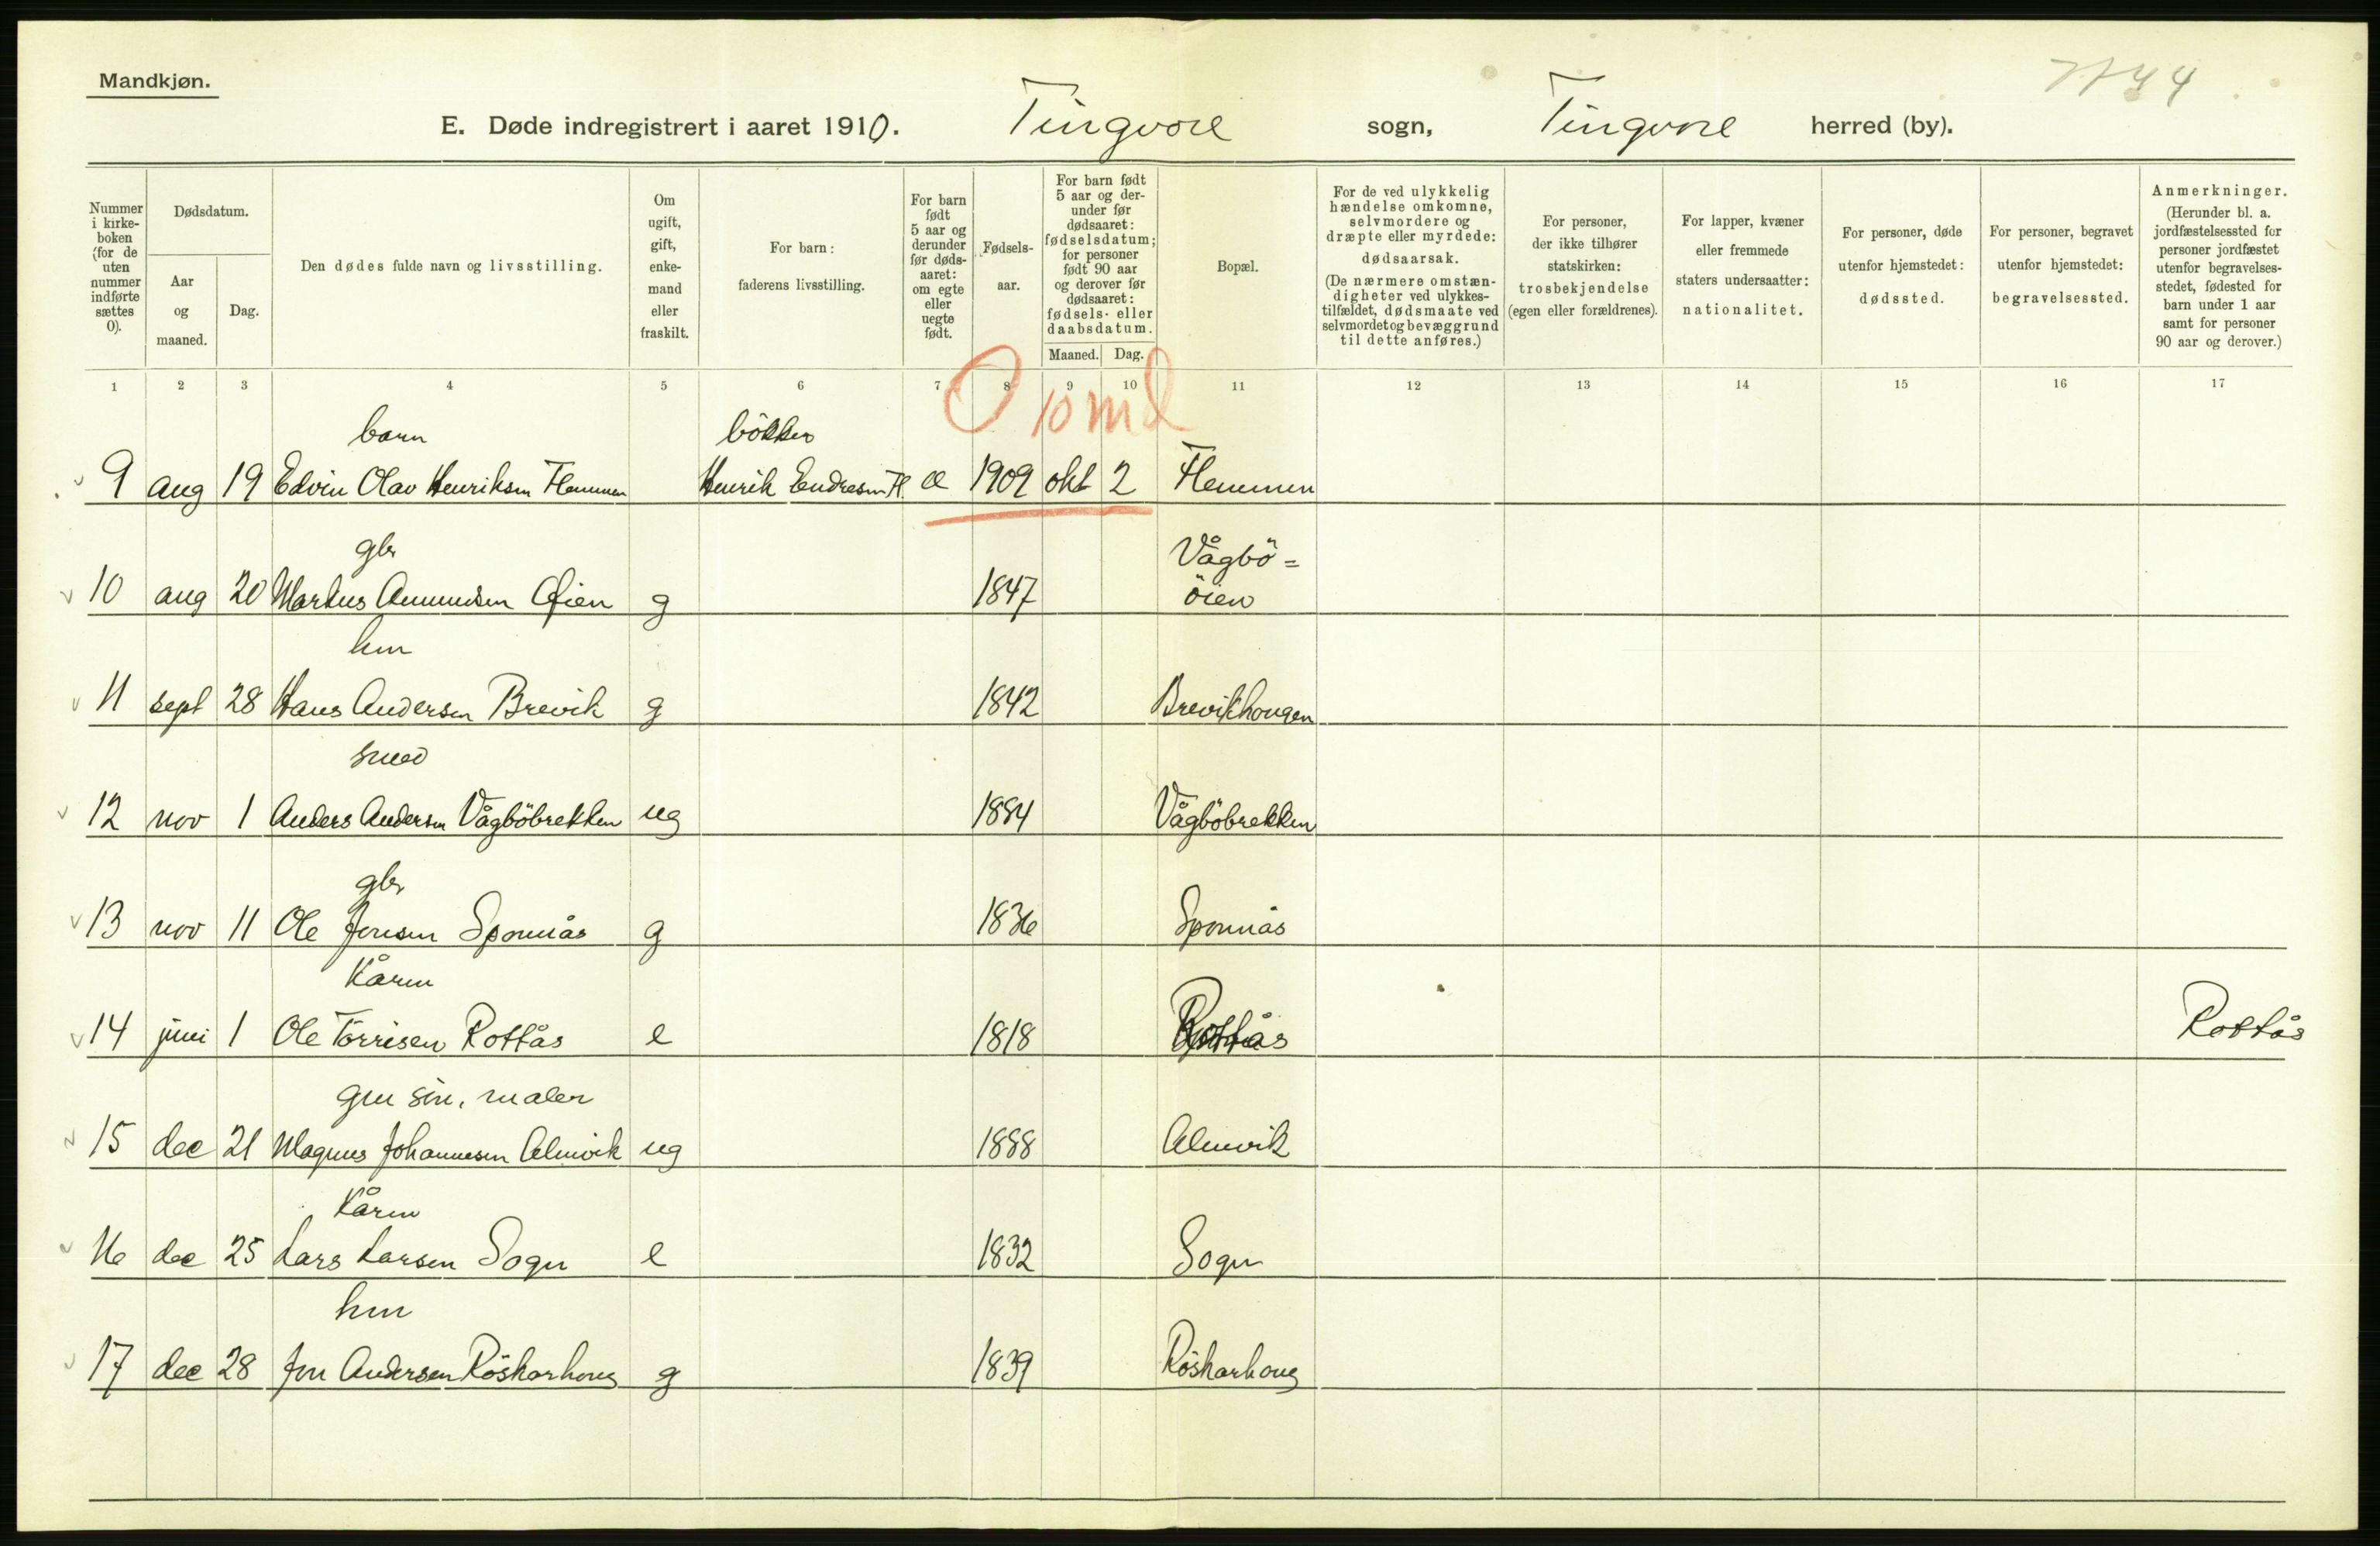 Mandkjøn.
E. Døde indregistrert i aaret 1910. Tingvoll sogn, Tingvoll herred (by).
Nummer i kirkeboken (for de uten nummer indførte sættes 0). | Dødsdatum. Aar og maaned. | Dag. | Den dødes fulde navn og livsstilling. | Om ugift, gift, enkemand eller fraskilt. | For barn: faderens livsstilling. | For barn født 5 aar og derunder før dødsaaret: om egte eller uegte født. | Fødselsaar. | For barn født 5 aar og derunder før dødsaaret: fødselsdatum; for personer født 90 aar og derover før dødsaaret: fødsels- eller daabsdatum. Maaned. | Dag. | Bopæl. | For de ved ulykkelig hændelse omkomne, selvmordere og dræpte eller myrdede: dødsaarsak. (De nærmere omstændigheter ved ulykkestilfældet, dødsmaate ved selvmordet og bevæggrund til dette anføres.) | For personer, der ikke tilhører statskirken: trosbekjendelse (egen eller forældrenes). | For lapper, kvæner eller fremmede staters undersaatter: nationalitet. | For personer, døde utenfor hjemstedet: dødssted. | For personer, begravet utenfor hjemstedet: begravelsessted. | Anmerkninger. (Herunder bl. a. jordfæstelsessted for personer jordfæstet utenfor begravelsesstedet, fødested for barn under 1 aar samt for personer 90 aar og derover.)
1 2 3 4 5 6 7 8 9 10 11 12 13 14 15 16 17
0 10 md
barn bökker
9 aug 19 Edvin Olav Henriksen Flemmen Henrik Endresen Fl. æ 1909 okt 2 Flemmen
gbr Vågbö=
10 aug 20 Markus Amundsen Øien g 1847 öien
hm
11 sept 28 Hans Andersen Brevik g 1842 Brevikhougen
smed
12 nov 1 Anders Andersen Vågböbrekken ug 1884 Vågböbrekken
gbr
13 nov 11 Ole Jonsen Sponnås g 1836 Sponnås
Kårm
14 juni 1 Ole Törrisen Rottås e 1818 Rottås Rottås
gm sön, maler
15 dec 21 Magnus Johannesen Almvik ug 1888 Almvik
Kårm
16 dec 25 Lars Larsen Sogn e 1832 Sogn
hm
17 dec 28 Jon Andersen Röskarhoug g 1839 Röskarhoug